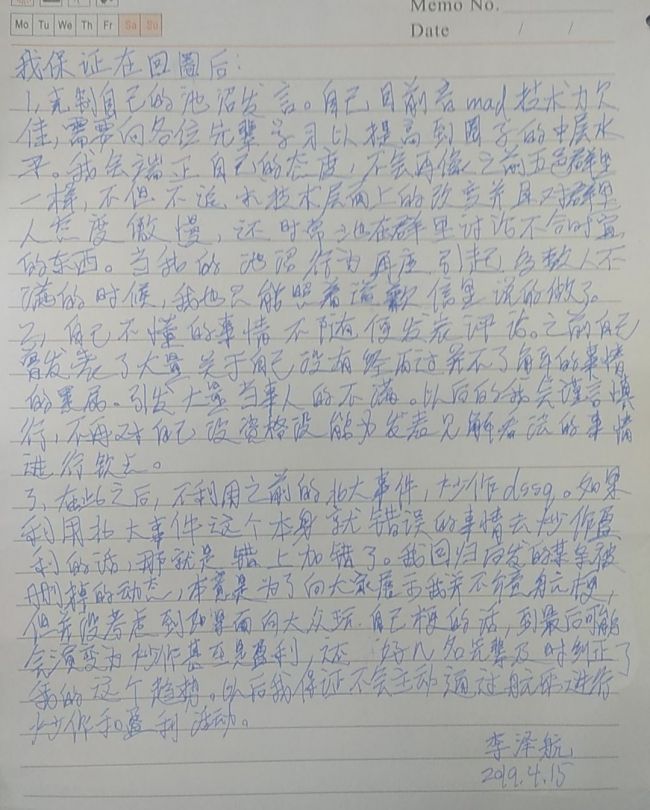 Memo No.
Mo Tu We Th Fr Sa Su
Date / /
我保证在回圈后:
1,克制自己的池沼发言。自己目前音mad技术力欠
佳,需要向各位先辈学习以提高到圈子的中层水
平。我会端正自己的态度,不会再像之前五色群里
一样,不但不追求技术层面上的改变并且对群里
人态度傲慢,还时常地在群里讨论不合时宜
的东西。当我的池沼行为再度引起多数人不
满的时候,我也只能照着道歉信里说的做了。
2,自己不懂的事情不随便发表评论。之前自己
曾发表了大量关于自己没有经历过并不了解的事情
的暴屑。引发大量当事人的不满。以后的我会谨言慎
行,不再对自己没资格没能力发表见解看法的事情
进行钦点。
3,在此之后,不利用之前的北大事件,炒作dssq。如果
利用北大事件这个本身就错误的事情去炒作盈
利的话,那就是错上加错了。我回归后发的某条被
删掉的动态,本意是为了向大家展示我并不介意身元梗,
但并没考虑到如果面向大众玩自己梗的话,到最后可能
会演变为炒作甚至是盈利,还好几名先辈及时纠正了
我的这个趋势。以后我保证不会主动通过航球进行
炒作和盈利活动。
李泽航
2019.4.15